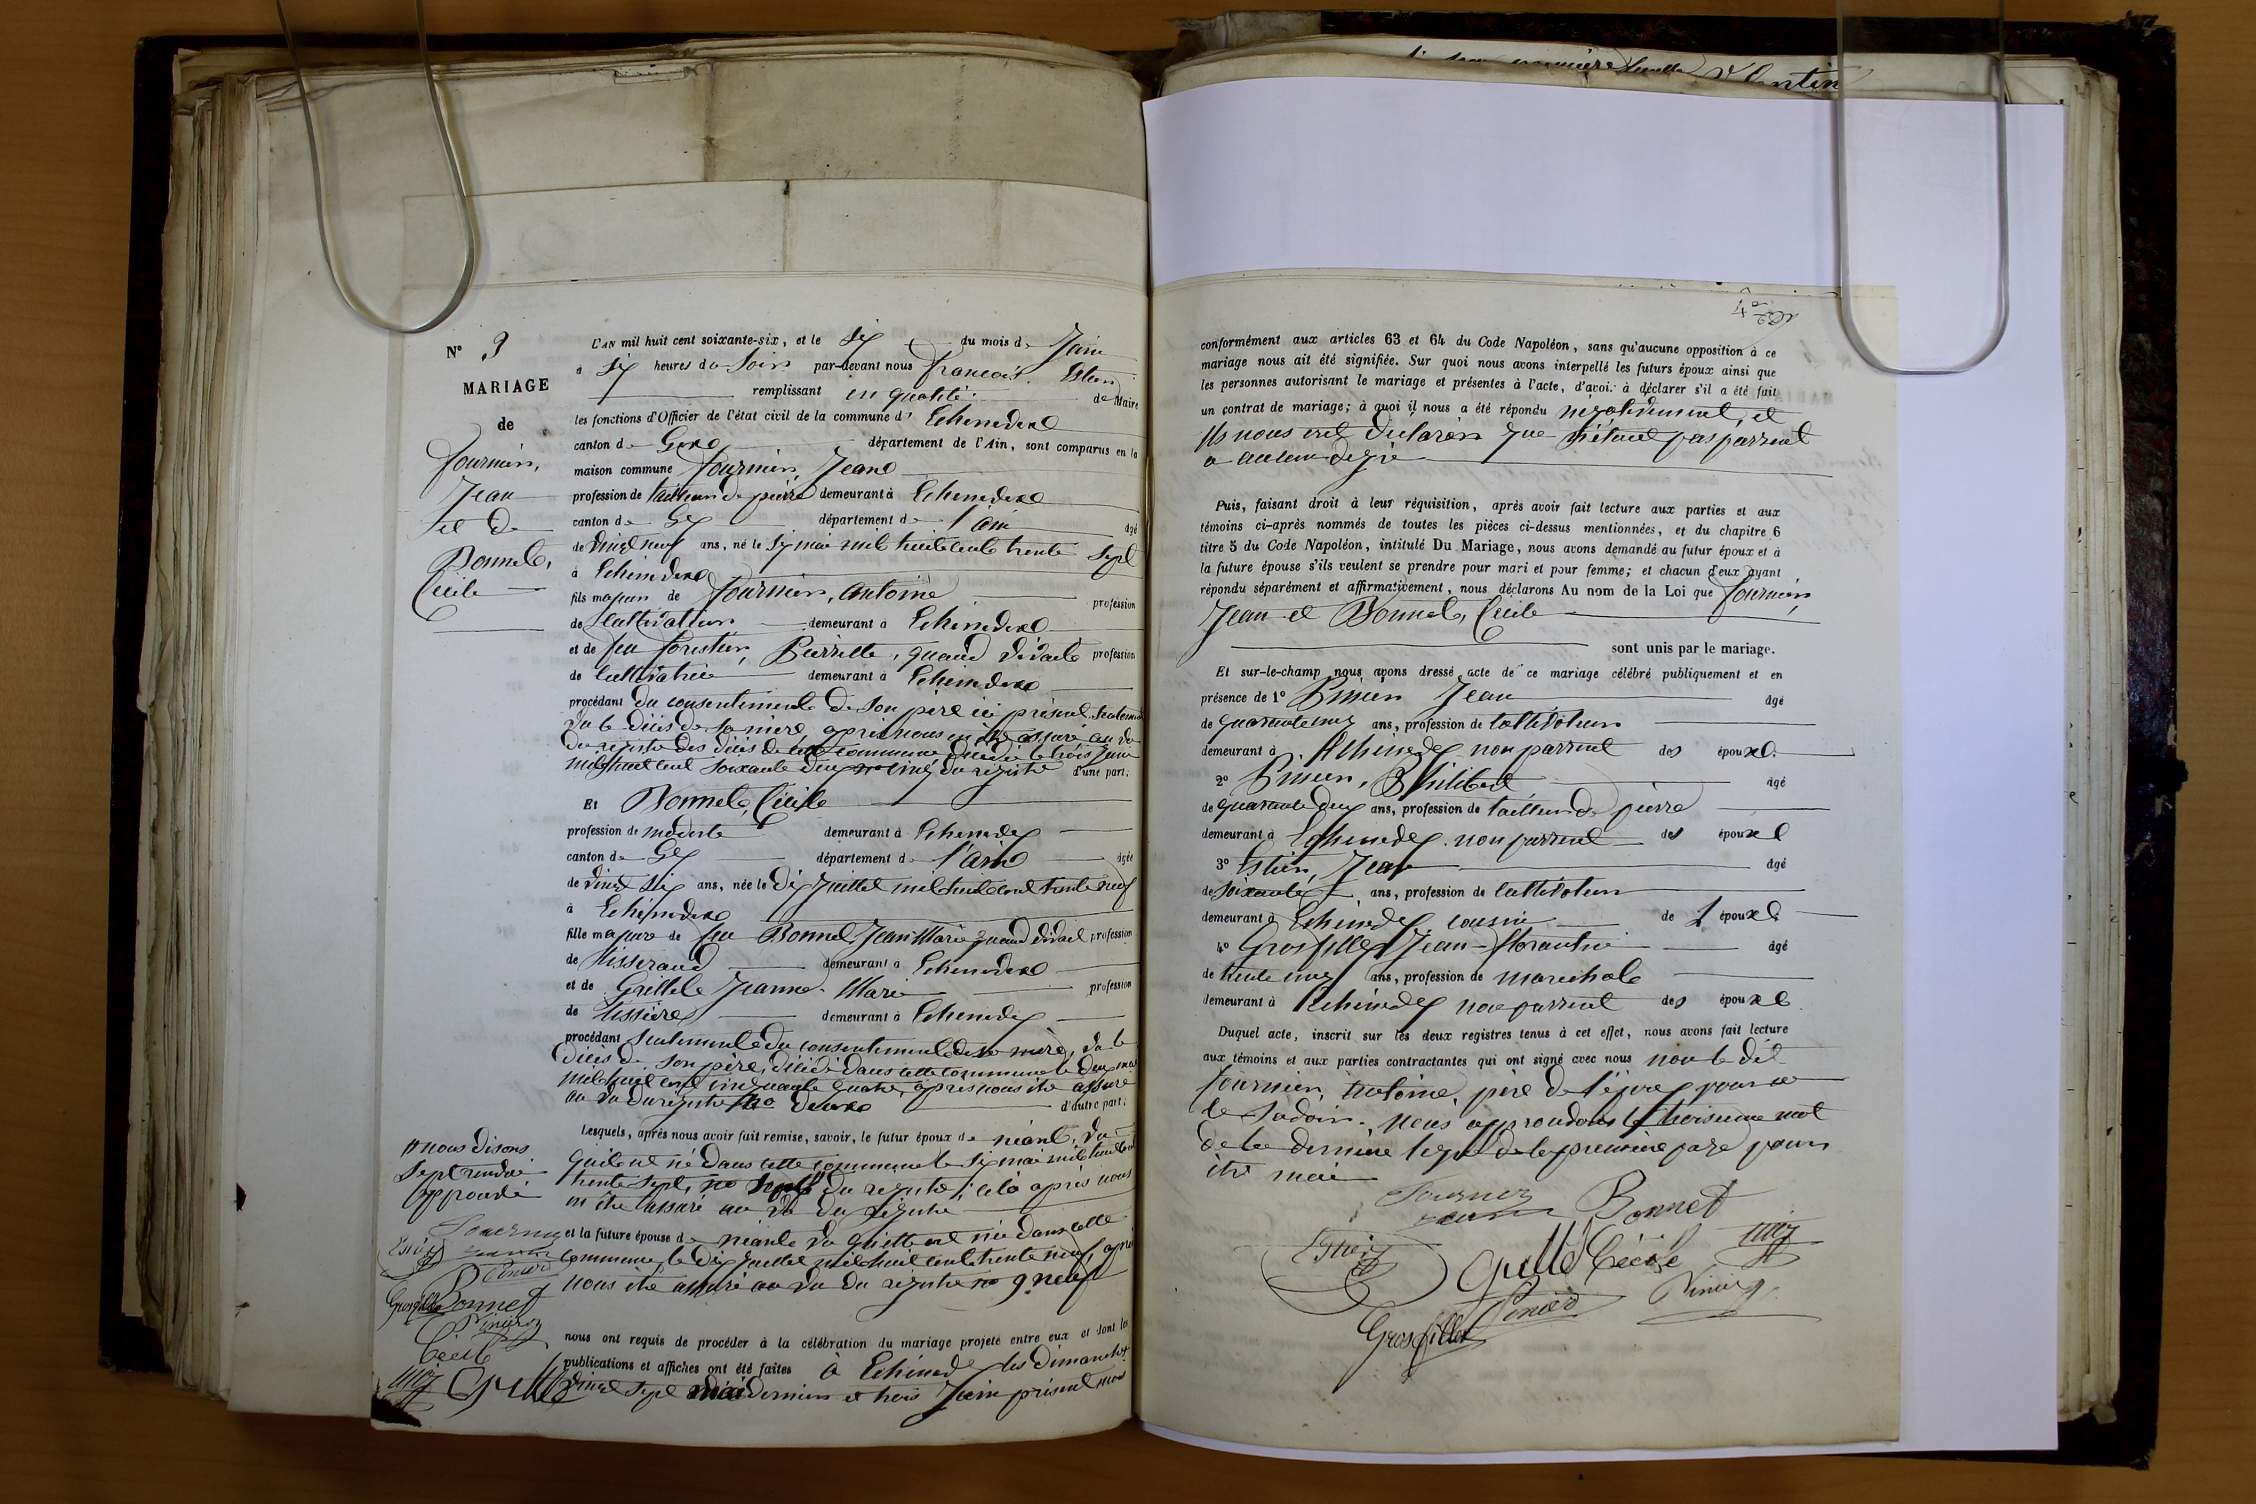 N° 3
MARIAGE
de
fournier,
Jean
et De
Bonnet,
Cécile
L'AN mil huit cent soixante-six, et le six du mois de Juin
à six heures du Soir par-devant nous françois Estier
remplissant en qualité de Maire
les fonctions d'Officier de l'état civil de la commune d' Echenevex
canton de Gex département de l'Ain, sont comparus en la
maison commune fournier, Jean
profession de tailleur de pierre demeurant à Echenevex
canton de Gex département de l'ain âgé
de vingt neuf ans, né le six mai mil huit cent trente sept
à Echenevex
fils majeur de fournier, antoine profession
de Cultivateur demeurant à Echenevex
et de feu forestier, Pierrette, quand vivait profession
de Cultivatrice demeurant à Echenevex
procédant du consentement de son père ici présent seulement
vu le décès de sa mère, après nous en être assuré au vu
du registre des décès de cette commune décédé le trois Juin
mil huit cent soixante deux no cinq du registre d'une part;
Et Bonnet, Cécile
profession de modiste demeurant à Echenevex
canton de Gex département de l'ain âgée
de vingt six ans, née le dix Juillet mil huit cent trente neuf
à Echenevex
fille majeure de feu Bonnet, Jean Marie quand vivait profession
de tisserand demeurant à Echenevex
et de Grillet Jeanne-Marie profession
de tissière demeurant à Echenevex
procédant Seulement du consentement de sa mère, vu le
décès de son père, décédé dans cette commune le deux mai
mil huit cent cinquante quatre, après nous être assuré
au vu du registre no deux d'autre part;
Lesquels, après nous avoir fait remise, savoir, le futur époux de néant, vu
qu'il est né dans cette commune le six mai mil huit cent
trente sept, no sept du registre; cela après nous
en être assuré au vu du registre
et la future épouse de néant vu qu'elle est née dans cette
commune, le dix Juillet mil huit cent trente neuf, après
nous être assuré au vu du registre no 9 neuf
nous ont requis de procéder à la célébration du mariage projeté entre eux et dont les
publications et affiches ont été faites à Echenevex les dimanches
vingt sept mai dernier et trois Juin présent mois
# nous disons
Sept rendu
approuvé
Fournier
Jean
Estier
Pinier
Grosfillex Bonnet
Pinier
Cécile
Grillet
conformément aux articles 63 et 64 du Code Napoléon, sans qu'aucune opposition à ce
mariage nous ait été signifiée. Sur quoi nous avons interpellé les futurs époux ainsi que
les personnes autorisant le mariage et présentes à l'acte, d'avoir à déclarer s'il a été fait
un contrat de mariage; à quoi il nous a été répondu négativement, et
Ils nous ont déclarés que n'étant pas parrent
a aucun degré
Puis, faisant droit à leur réquisition, après avoir fait lecture aux parties et aux
témoins ci-après nommés de toutes les pièces ci-dessus mentionnées, et du chapitre 6
titre 5 du Code Napoléon, intitulé Du Mariage, nous avons demandé au futur époux et à
la future épouse s'ils veulent se prendre pour mari et pour femme; et chacun d'eux ayant
répondu séparément et affirmativement, nous déclarons Au nom de la Loi que fournier,
Jean et Bonnet, Cécile
sont unis par le mariage.
Et sur-le-champ nous avons dressé acte de ce mariage célébré publiquement et en
présence de 1° Pinier Jean âgé
de quarante cinq ans, profession de cultivateur
demeurant à Echenevex non parrent des époux
2° Pinier, Philibert âgé
de quarante deux ans, profession de tailleur de pierre
demeurant à Echenevex non parrent des époux
3° Estier, Jean âgé
de soixante ans, profession de cultivateur
demeurant à Echenevex cousin de l époux
4° Grosfillex Jean-florentin âgé
de trente cinq ans, profession de maréchal
demeurant à Echenevex non parrent des époux
Duquel acte, inscrit sur les deux registres tenus à cet effet, nous avons fait lecture
aux témoins et aux parties contractantes qui ont signé avec nous non le dit
fournier, antoine, père de l'époux pour ne
le savoir. nous approuvons le troisième mot
de la dernière ligne de la première page pour
être mai
Fournier
Jean Bonnet
Estier Grillet Cécile
Pinier Pinier
Grosfillex